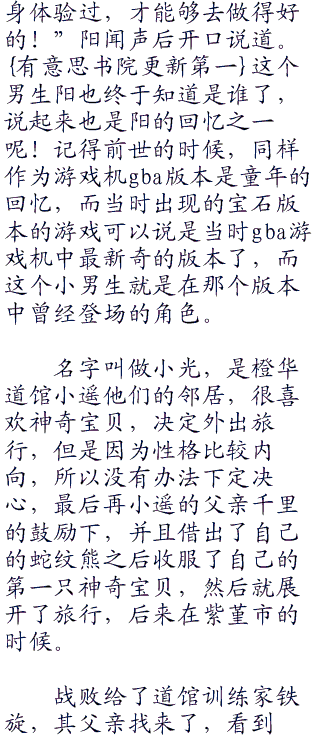 身体验过，才能够去做得好
的！”阳闻声后开口说道。
{有意思书院更新第一}这个
男生阳也终于知道是谁了，
说起来也是阳的回忆之一
呢！记得前世的时候，同样
作为游戏机gba版本是童年的
回忆，而当时出现的宝石版
本的游戏可以说是当时gba游
戏机中最新奇的版本了，而
这个小男生就是在那个版本
中曾经登场的角色。
名字叫做小光，是橙华
道馆小遥他们的邻居，很喜
欢神奇宝贝，决定外出旅
行，但是因为性格比较内
向，所以没有办法下定决
心，最后再小遥的父亲千里
的鼓励下，并且借出了自己
的蛇纹熊之后收服了自己的
第一只神奇宝贝，然后就展
开了旅行，后来在紫堇市的
时候。
战败给了道馆训练家铁
旋，其父亲找来了，看到